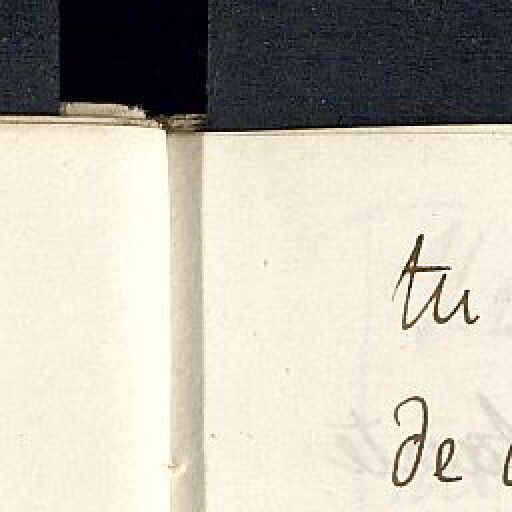 tu
de